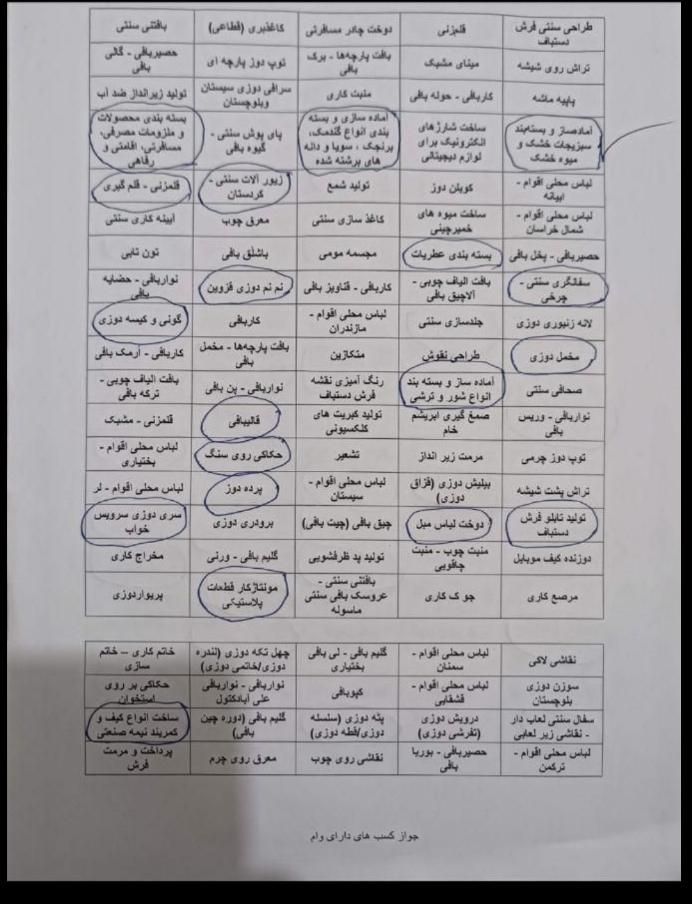 طراحی سنتی فرش دستباف | قلمزنی | دوخت چادر مسافرتی | کاغذبری (قطاعی) | بافتنی سنتی
تراش روی شیشه | مینای مشبک | بافت پارچه‌ها - برک بافی | توپ دوز پارچه ای | حصیربافی - گالی بافی
پاپیه ماشه | کاربافی - حوله بافی | منبت کاری | سرافی دوزی سیستان وبلوچستان | تولید زیرانداز ضد آب
آماده‌ساز و بسته‌بند سبزیجات خشک و میوه خشک | ساخت شارژهای الکترونیک برای لوازم دیجیتالی | آماده سازی و بسته بندی انواع گندمک، برنجک ، سویا و دانه های برشته شده | پای پوش سنتی - گیوه بافی | بسته بندی محصولات و ملزومات مصرفی، مسافرتی، اقامتی و رفاهی
لباس محلی اقوام - ابیانه | کوبلن دوز | تولید شمع | زیور آلات سنتی - کردستان | قلمزنی - قلم گیری
لباس محلی اقوام - شمال خراسان | ساخت میوه های خمیرچینی | کاغذ سازی سنتی | معرق چوب | آیینه کاری سنتی
حصیربافی - پخل بافی | بسته بندی عطریات | مجسمه مومی | باشلق بافی | تون تابی
سفالگری سنتی - چرخی | بافت الیاف چوبی - آلاچیق بافی | کاربافی - قناویز بافی | نم نم دوزی قزوین | نواربافی - حضایه بافی
لانه زنبوری دوزی | جلدسازی سنتی | لباس محلی اقوام - مازندران | کاربافی | گونی و کیسه دوزی
مخمل دوزی | طراحی نقوش | متکازین | بافت پارچه‌ها - مخمل بافی | کاربافی - ارمک بافی
صحافی سنتی | آماده ساز و بسته بند انواع شور و ترشی | رنگ آمیزی نقشه فرش دستباف | نواربافی - پن بافی | بافت الیاف چوبی - ترکه بافی
نواربافی - وریس بافی | صمغ گیری ابریشم خام | تولید کبریت های کلکسیونی | قالیبافی | قلمزنی - مشبک
توپ دوز چرمی | مرمت زیر انداز | تشعیر | حکاکی روی سنگ | لباس محلی اقوام - بختیاری
تراش پشت شیشه | بیلیش دوزی (قزاق دوزی) | لباس محلی اقوام - سیستان | پرده دوز | لباس محلی اقوام - لر
تولید تابلو فرش دستباف | دوخت لباس مبل | چیق بافی (چیت بافی) | برودری دوزی | سری دوزی سرویس خواب
دوزنده کیف موبایل | منبت چوب - منبت چاقویی | تولید پد ظرفشویی | گلیم بافی - ورنی | مخراج کاری
مرصع کاری | جو ک کاری | بافتنی سنتی - عروسک بافی سنتی ماسوله | مونتاژکار قطعات پلاستیکی | پریواردوزی
نقاشی لاکی | لباس محلی اقوام - سمنان | گلیم بافی - لی بافی بختیاری | چهل تکه دوزی (لندره دوزی/خاتمی دوزی) | خاتم کاری – خاتم سازی
سوزن دوزی بلوچستان | لباس محلی اقوام - قشقایی | کپوبافی | نواربافی - نواربافی علی آبادکتول | حکاکی بر روی استخوان
سفال سنتی لعاب دار - نقاشی زیر لعابی | درویش دوزی (تفرشی دوزی) | پته دوزی (سلسله دوزی/قطه دوزی) | گلیم بافی (دوره چین بافی) | ساخت انواع کیف و کمربند نیمه صنعتی
لباس محلی اقوام - ترکمن | حصیربافی - بوریا بافی | نقاشی روی چوب | معرق روی چرم | پرداخت و مرمت فرش
جواز کسب های دارای وام